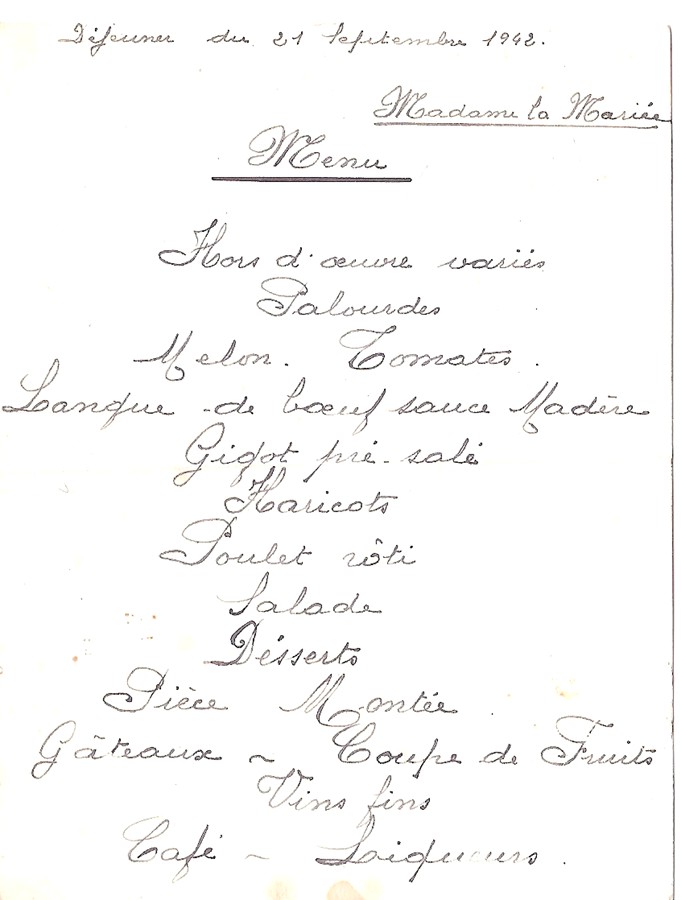 Déjeuner du 21 Septembre 1942.
Madame la Mariée
Menu
Hors d'œuvre variés
Palourdes
Melon. Tomates.
Langue de bœuf sauce Madère
Gigot pré-salé
Haricots
Poulet rôti
Salade
Désserts
Pièce Montée.
Gâteaux ~ Coupe de Fruits
Vins fins
Café ~ Liqueurs.